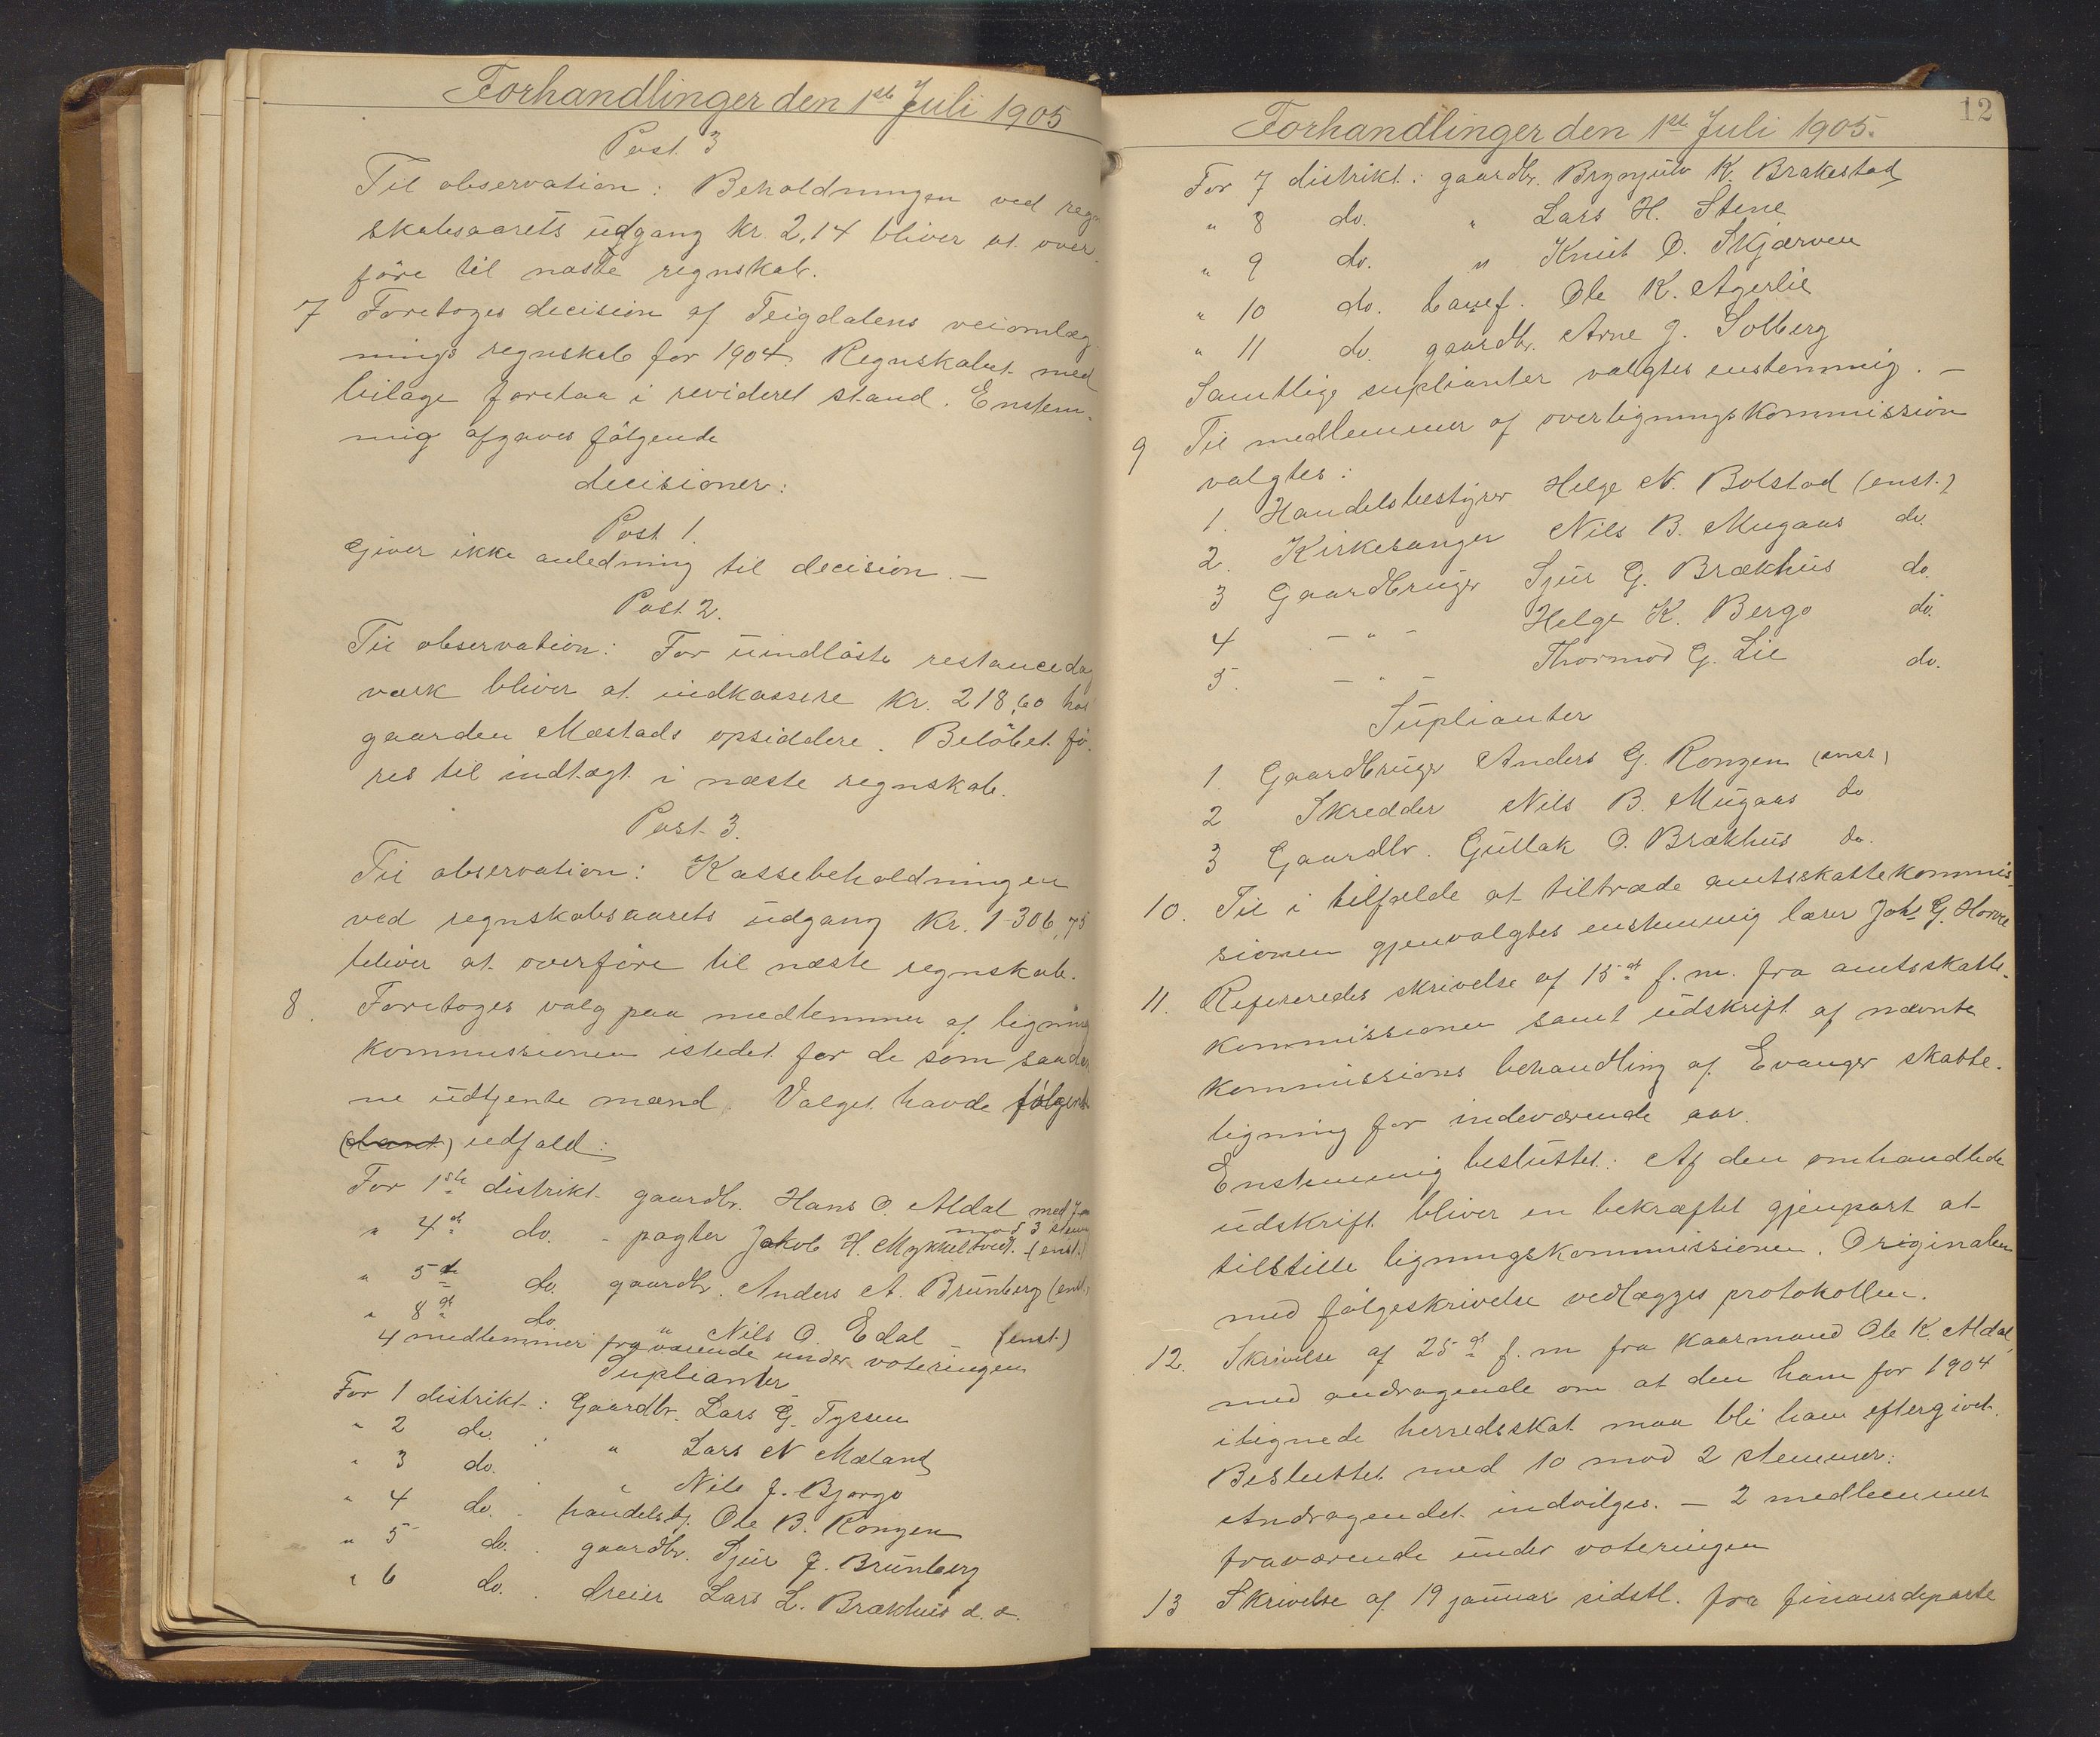 Forhandlinger den 1ste Juli 1905
Post 3
Til observation: Beholdningen ved regn
skabsaarets udgang kr. 2,14 bliver at over
føre til næste regnskab.
7 Foretoges decision af Teigdalens veiomlæg-
nings regnskab for 1904. Regnskabet med
bilage forelaa i revideret stand. Enstem-
mig afgaves følgende
decisioner:
Post 1.
Giver ikke anledning til decision. —
Post 2.
Til observation: For uindløste restancedag
værk bliver at indkassere kr. 218,60 hos
gaarden Mæstads opsiddere. Beløbet fø-
res til indtægt i næste regnskab.
Post 3.
Til observation: Kassebeholdningen
ved regnskabsaarets udgang kr. 1306,75
bliver at overføre til næste regnskab.
8. Foretoges valg paa medlemmer af ligning
kommissionen istedet for de som saadan
ne udtjente mænd. Valget havde følgende
udfald:
For 1ste distrikt gaardbr. Hans O. Aldal med 7
mod 3 stem
" 4de do. - pagter Jakob H. Mykkeltvedt. (enst.)
" 5te do. gaardbr. Anders A. Brunberg (enst.)
" 8de do. " Nils O. Edal (enst.)
4 medlemmer fraværende under voteringen
Suplianter
For 1 distrikt: Gaardbr. Lars G. Tyssen
" 2 do. : " Lars N Mæland
" 3 do. . " Nils J. Bjørgo
" 4 do. . handelsbj. Ole B. Rongen
" 5 do. . gaardbr. Sjur J. Brunberg
" 6 do. . dreier Lars L. Brækhus d. æ.
12
Forhandlinger den 1ste Juli 1905.
For 7 distrikt: gaardbr. Brynjulv K. Brakestad
" 8 do. " Lars H. Stene
" 9 do. " Knut O. Skjærven
" 10 do. Ole K. Agerlie
" 11 do. gaardbr. Arne J. Solberg
Samtlige suplianter valgtes enstemmig. —
9 Til medlemmer af overligningskommission
valgtes:
1. Handelsbestyrer Helge N. Bolstad (enst.)
2. Kirkesanger Nils B. Mugaas do.
3 Gaardbruger Sjur G. Brækhus do.
4 — " — Helge K. Bergo do.
5. — " — Thormod G. Lie do.
Suplianter
1. Gaardbruger Anders G. Rongen (enst)
2 Skredder Nils B. Mugaas do
3 Gaardbr. Gullak O. Brækhus do.
10. Til i tilfælde at tiltræde amtsskattekommis-
sionen gjenvalgtes enstemmig lærer Johs G. Horvei
11. Refereredes skrivelse af 15de f. m. fra amtsskatte-
kommissionen samt udskrift af nævnte
kommissions behandling af Evanger skatte-
ligning for indeværende aar.
Enstemmig besluttet: Af den omhandlede
udskrift bliver en bekræftet gjenpart at
tilstille ligningskommissionen. Originalen
med følgeskrivelse vedlægges protokollen.
12. Skrivelse af 25de f. m fra kaarmand Ole K. Aldal,
med andragende om at den ham for 1904
ilignede herredsskat maa bli ham eftergivet.
Besluttet med 10 mod 2 stemmer:
Andragendet indvilges. — 2 medlemmer
fraværende under voteringen
13 Skrivelse af 19 januar sidstl. fra finansdeparte